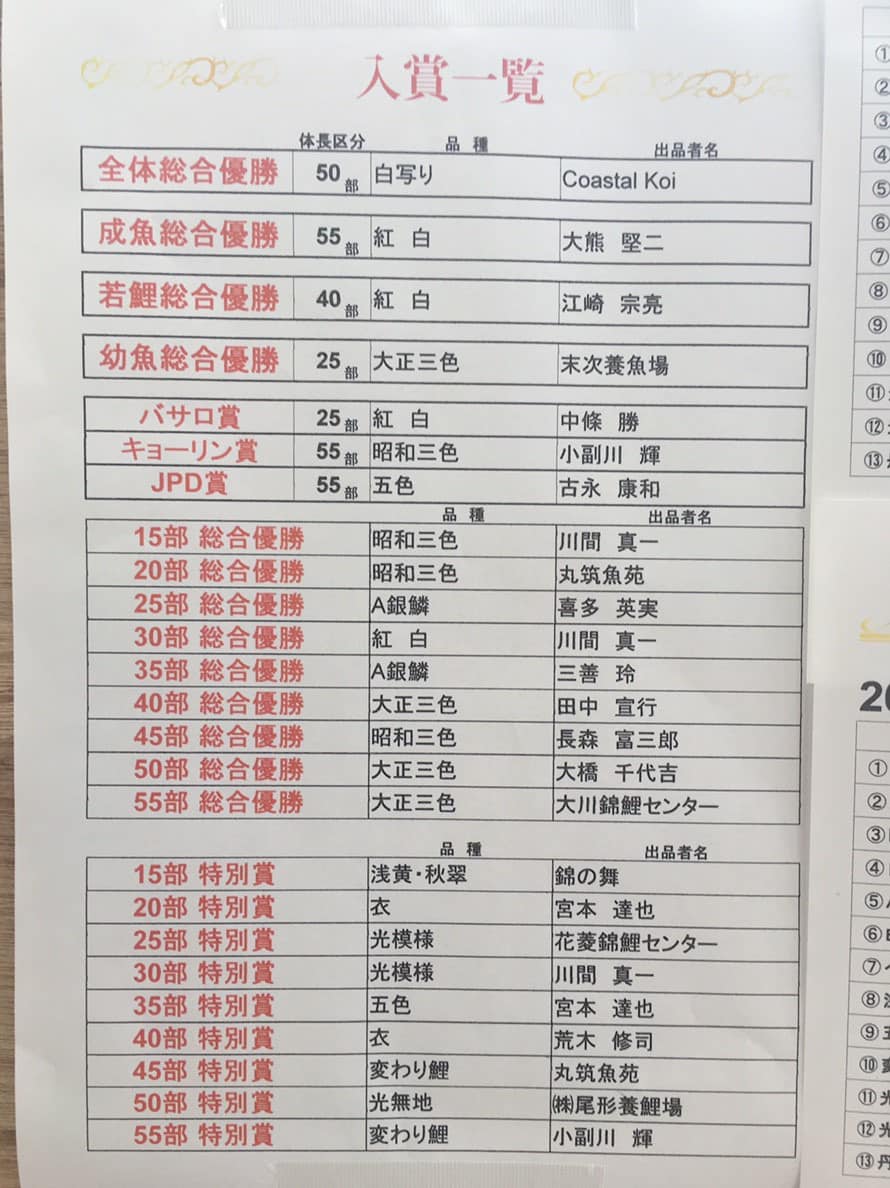 入賞一覧
体長区分 品種 出品者名
全体総合優勝 50部 白写り Coastal Koi
成魚総合優勝 55部 紅 白 大熊 堅二
若鯉総合優勝 40部 紅 白 江崎 宗亮
幼魚総合優勝 25部 大正三色 末次養魚場
バサロ賞 25部 紅 白 中條 勝
キョーリン賞 55部 昭和三色 小副川 輝
JPD賞 55部 五色 古永 康和
品種 出品者名
15部 総合優勝 昭和三色 川間 真一
20部 総合優勝 昭和三色 丸筑魚苑
25部 総合優勝 A銀鱗 喜多 英実
30部 総合優勝 紅 白 川間 真一
35部 総合優勝 A銀鱗 三善 玲
40部 総合優勝 大正三色 田中 宣行
45部 総合優勝 昭和三色 長森 富三郎
50部 総合優勝 大正三色 大橋 千代吉
55部 総合優勝 大正三色 大川錦鯉センター
品種 出品者名
15部 特別賞 浅黄・秋翠 錦の舞
20部 特別賞 衣 宮本 達也
25部 特別賞 光模様 花菱錦鯉センター
30部 特別賞 光模様 川間 真一
35部 特別賞 五色 宮本 達也
40部 特別賞 衣 荒木 修司
45部 特別賞 変わり鯉 丸筑魚苑
50部 特別賞 光無地 ㈱尾形養鯉場
55部 特別賞 変わり鯉 小副川 輝
①
②
③
④
⑤
⑥
⑦
⑧
⑨
⑩
⑪
⑫
⑬
20
①
②
③
④
⑤
⑥
⑦
⑧
⑨
⑩
⑪光
⑫光
⑬丹